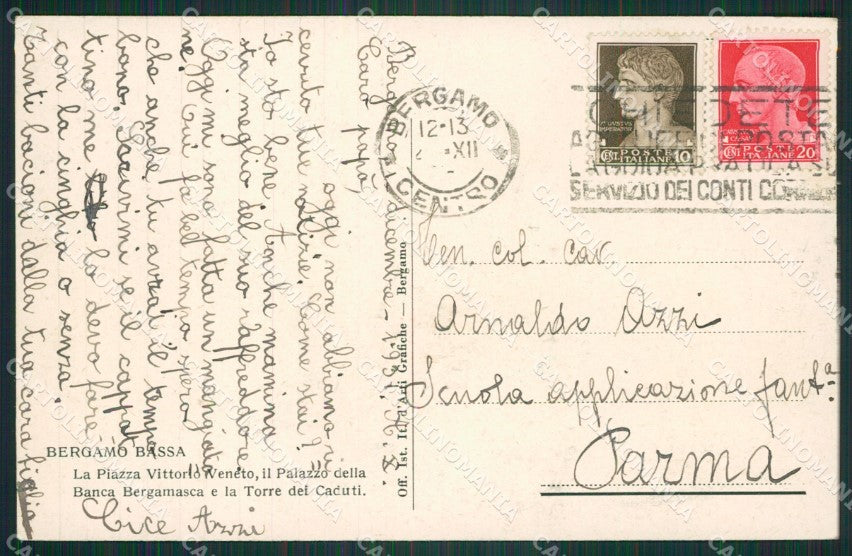 Bergamo dicembre - 1931 X
Caro papà oggi non abbiamo ri
cevuto tue notizie. Come stai?
Io sto bene. Anche mamina
sta meglio del suo raffreddore
Oggi mi sono fatta un mangiata
ne! Qui fa bel tempo spero
che anche tu avrai il tempo
bono. Scrivimi se il cappot
tino me lo devo fare
con la cinghia o senza.
Tanti bacioni dalla tua cara figlia
Cice Azzi
BERGAMO BASSA
La Piazza Vittorio Veneto, il Palazzo della
Banca Bergamasca e la Torre dei Caduti.
Off. Ist. It. d'Arti Grafiche — Bergamo
BERGAMO
12-13
XII
CENTRO
POSTE
ITALIANE
CENT
10
POSTE
ITALIANE
CENT
20
SERVIZIO DEI CONTI
Ten. col. cav
Arnaldo Azzi
Scuola applicazione fant.a
Parma
CARTOLINOMANIA